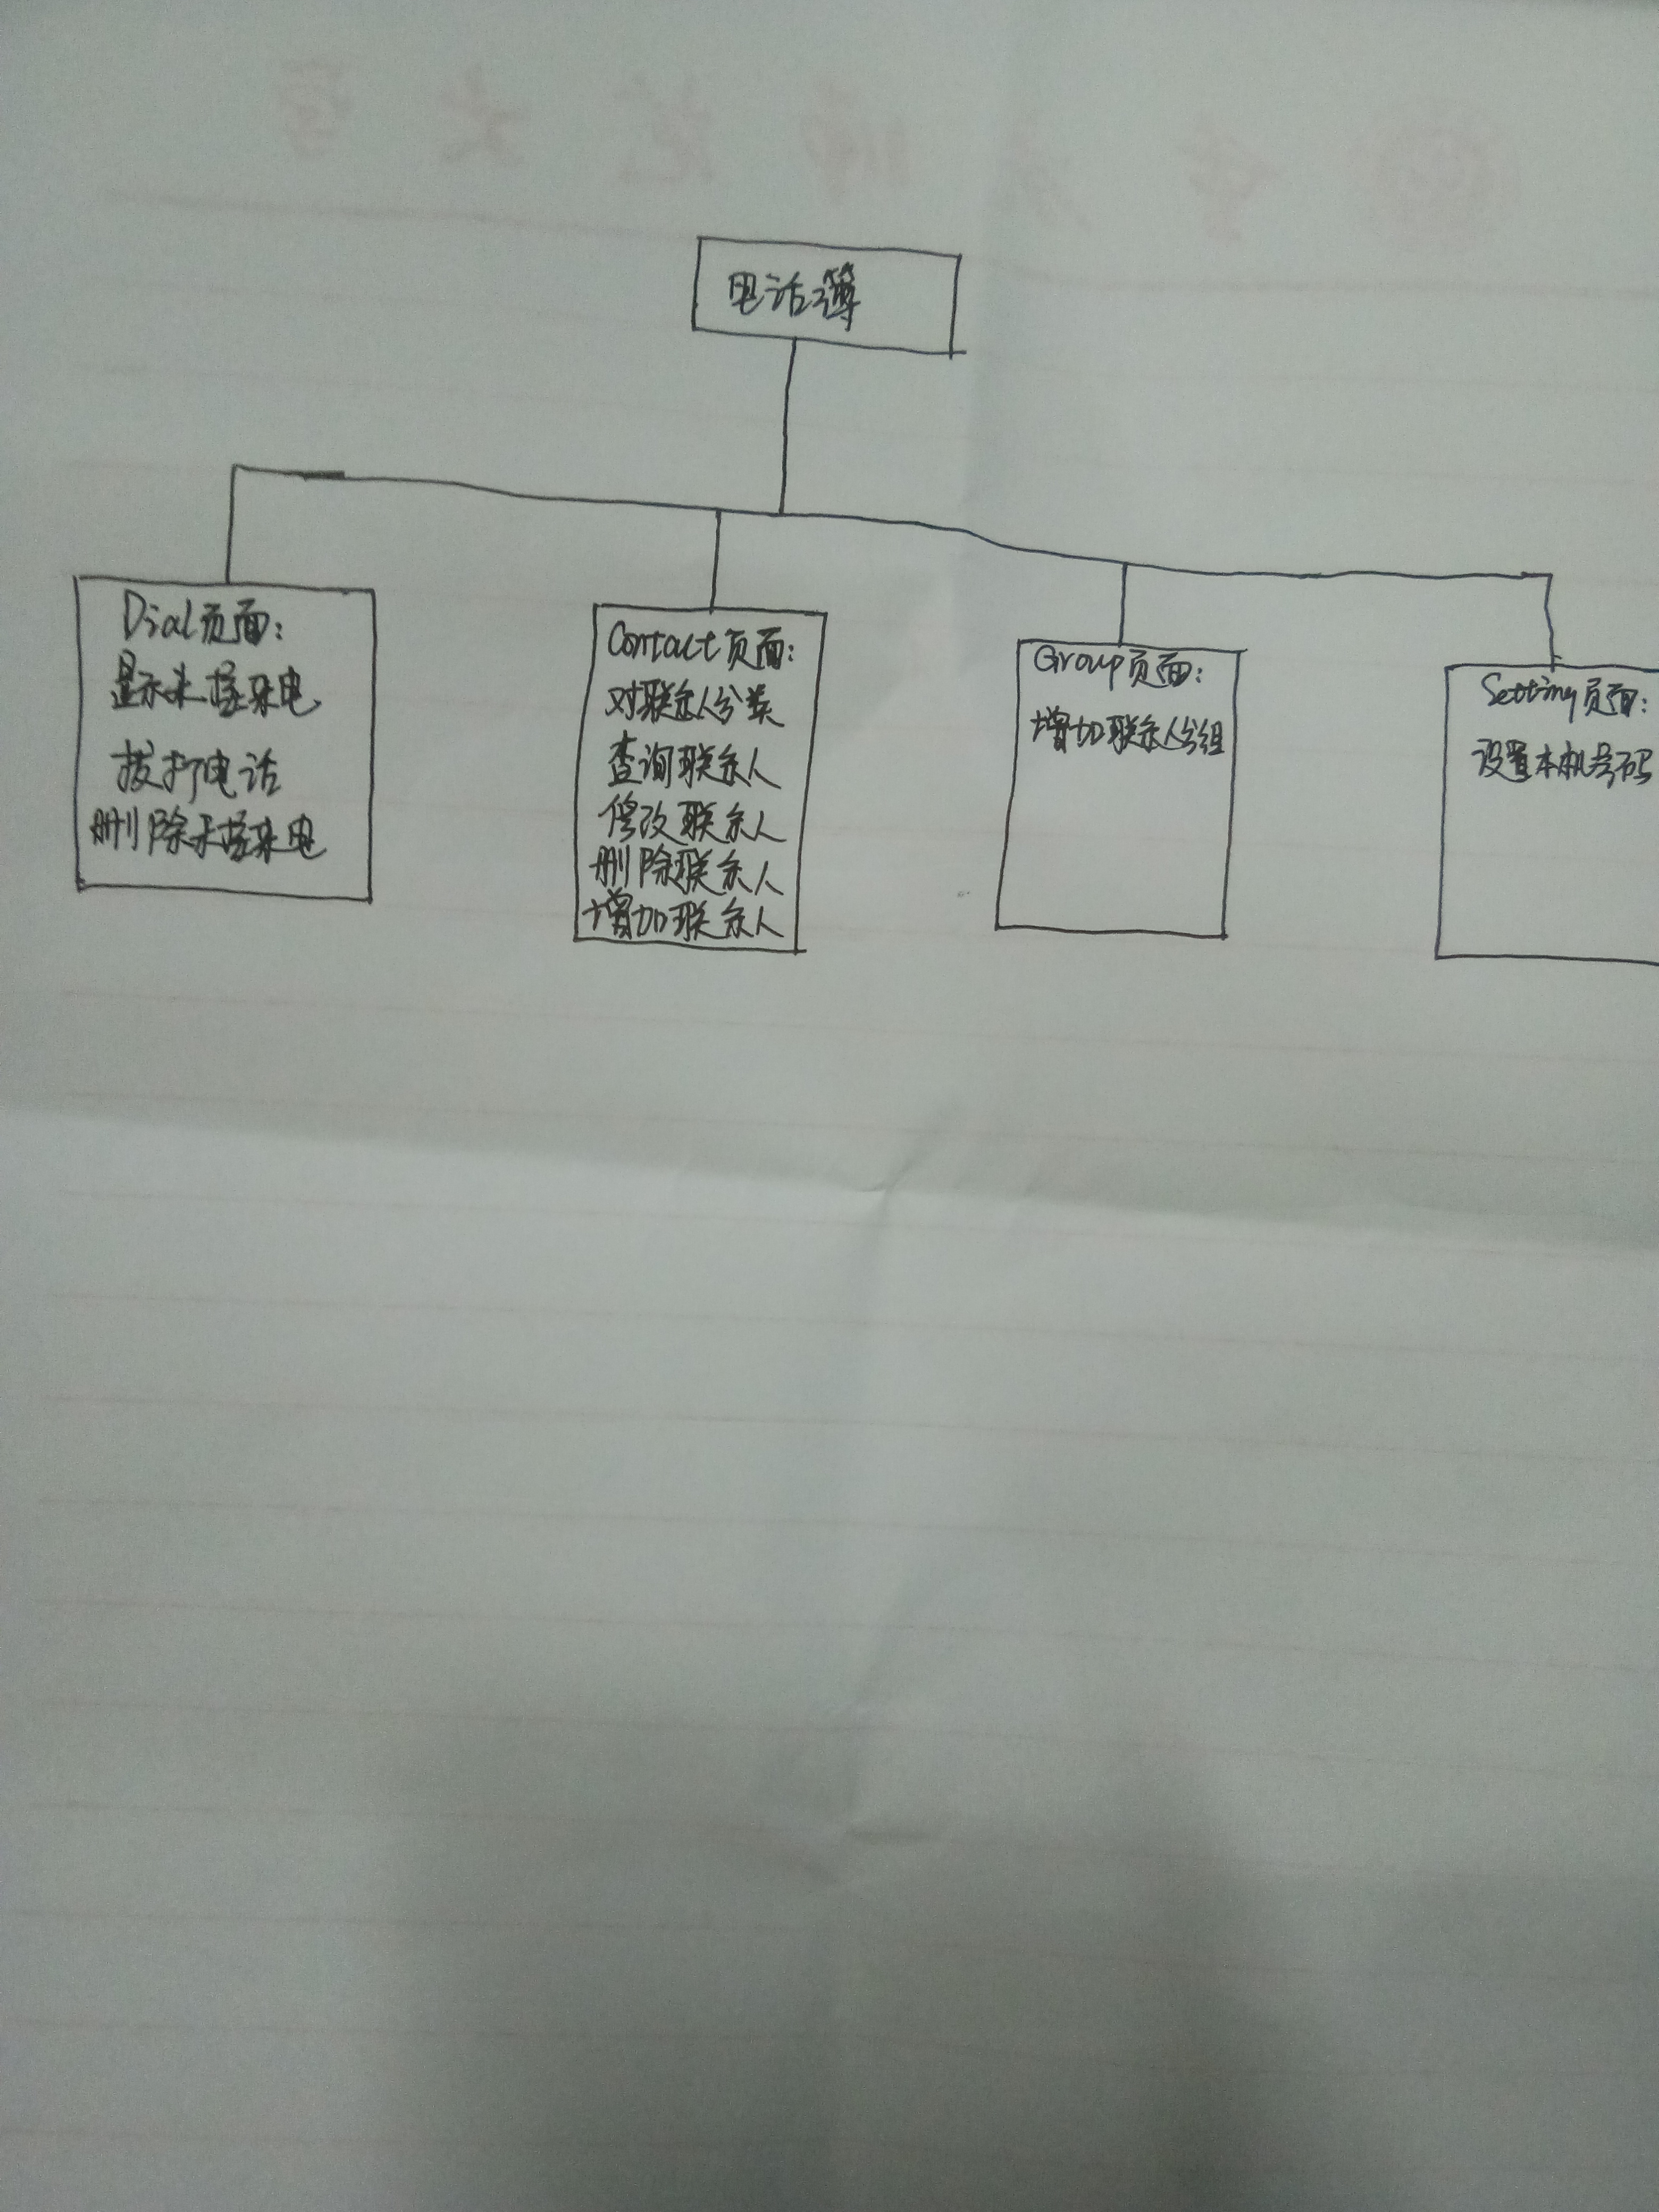 电话簿
Dial页面:
显示未接来电
拨打电话
删除未接来电
Contact页面:
对联系人分类
查询联系人
修改联系人
删除联系人
增加联系人
Group页面:
增加联系人分组
Setting页面:
设置本机号码